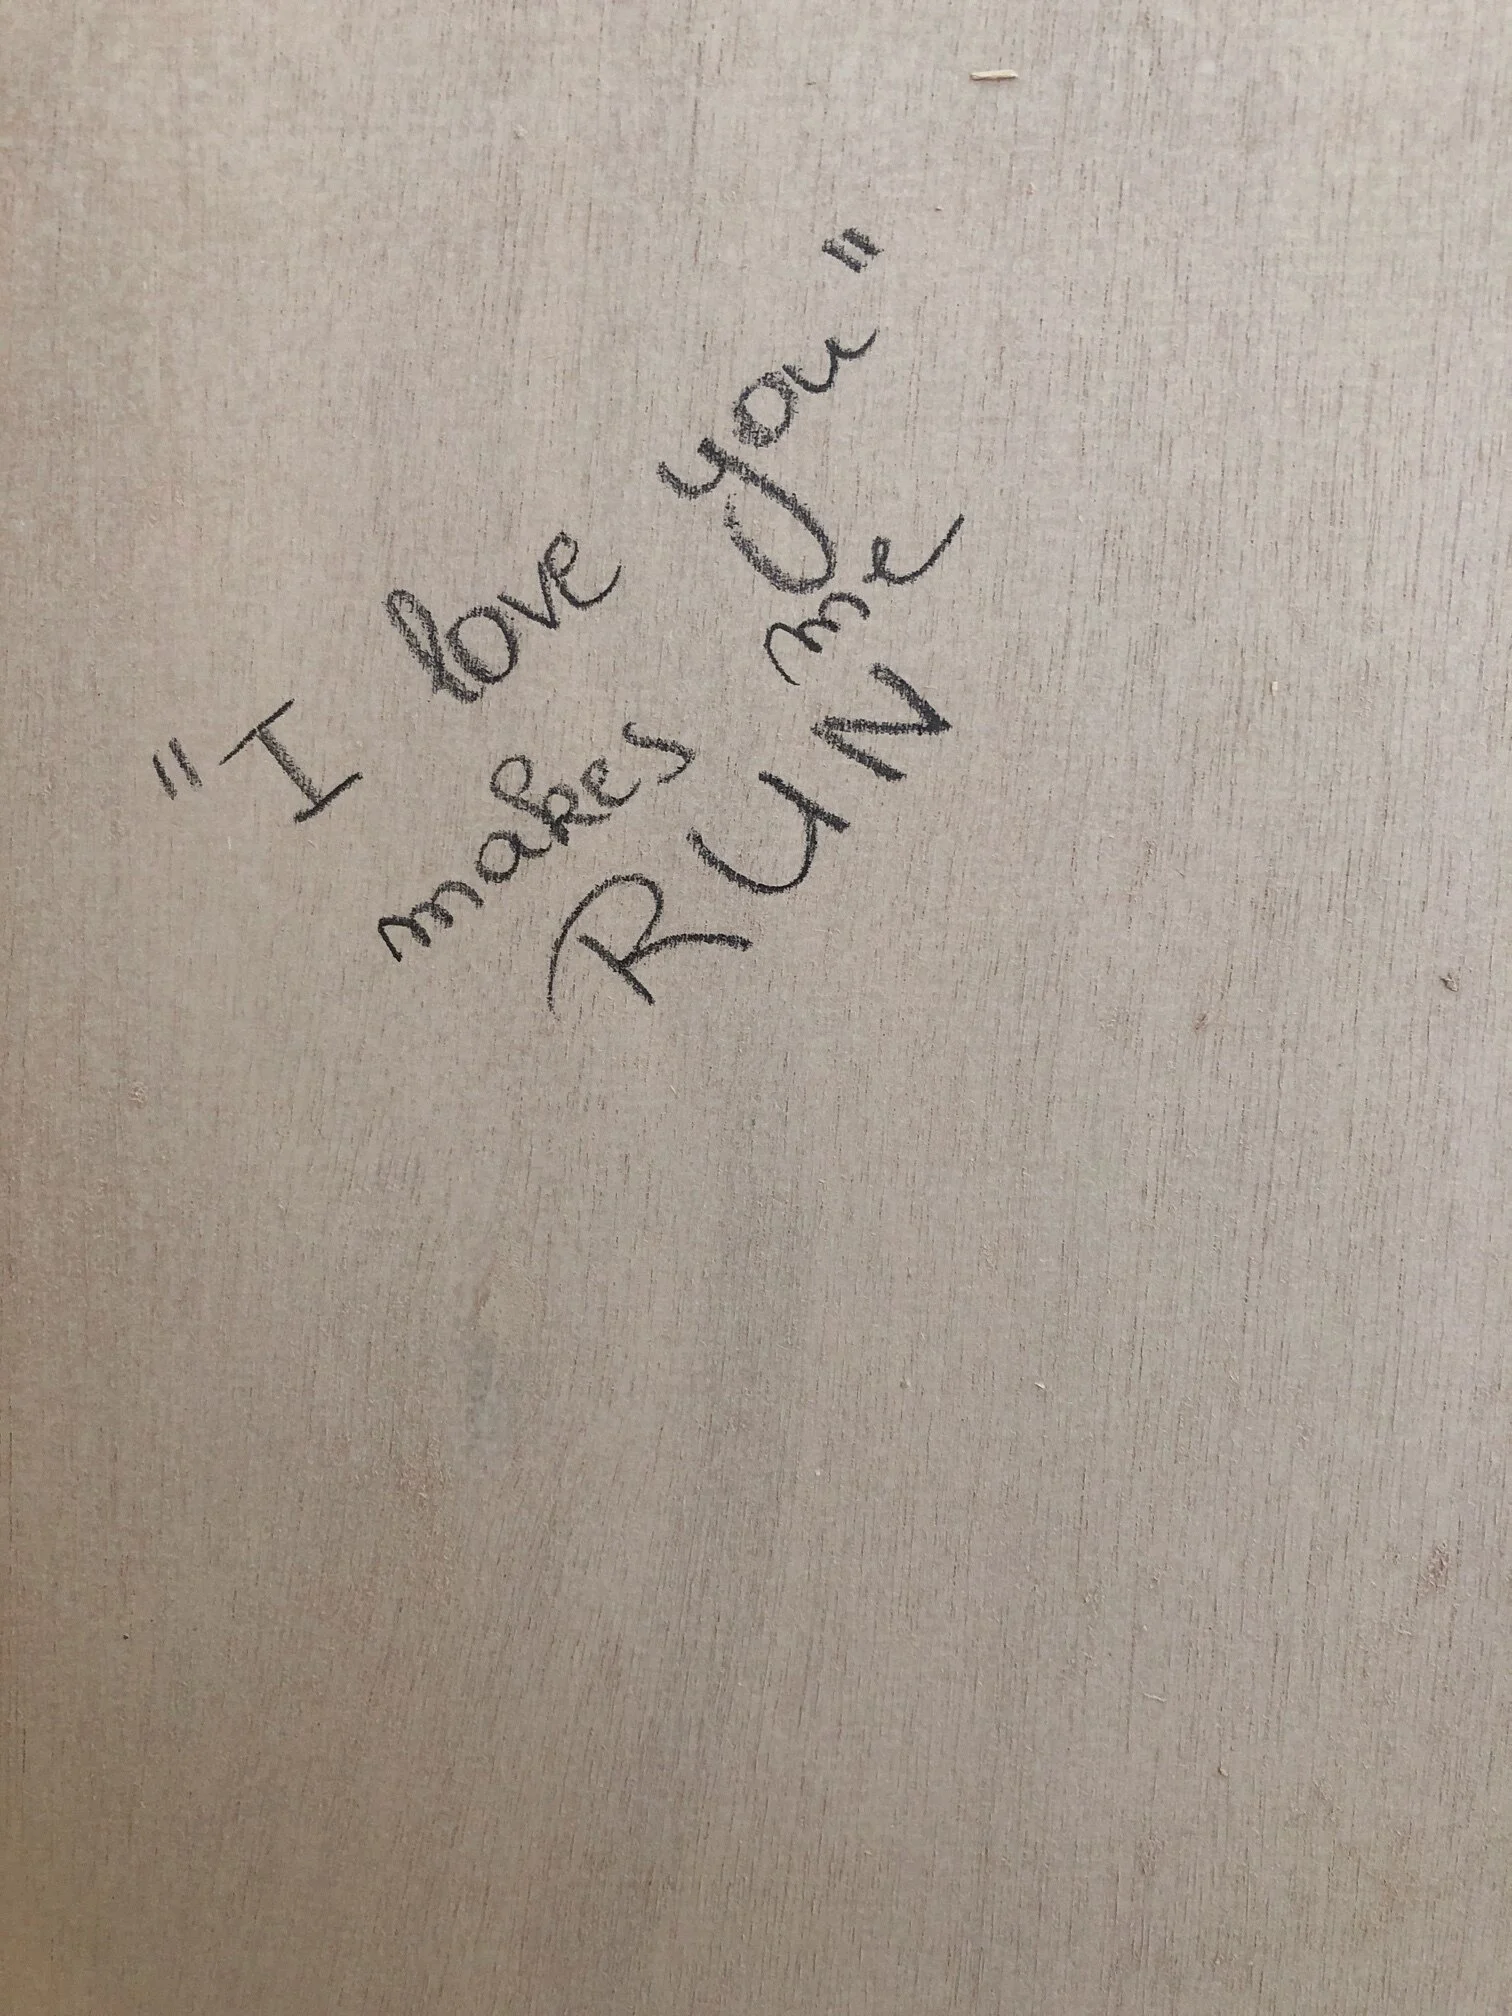 "I love you"
makes me
RUN